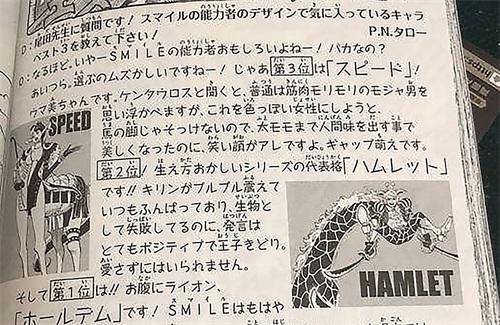 D：尾田先生に質問です！スマイルの能力者のデザインで気に入っているキャラ
ベスト3を教えて下さい！ P.N.タロー
O：なるほど。いやーSMILEの能力者おもしろいよね！バカなの？
あいつら。選ぶのムズかしいですねー！じゃあ第3位は「スピード」！
ウマ美ちゃんです。ケンタウロスと聞くと、普通は筋肉モリモリのモジャ男を
思い浮かべますが、これを色っぽい女性にしようと、
馬の脚じゃそっけないので、太モモまで人間味を出す事で
美しくなったのに、笑い顔がアレですよ。ギャップ萌えです。
SPEED
第2位！生え方おかしいシリーズの代表格「ハムレット」
です!!キリンがプルプル震えて
いつもふんばっており、生物と
して失敗してるのに、発言は
とてもポジティブで王子きどり。
愛さずにはいられません。
HAMLET
そして第1位は!!お腹にライオン、
「ホールデム」です！SMILEはもはや